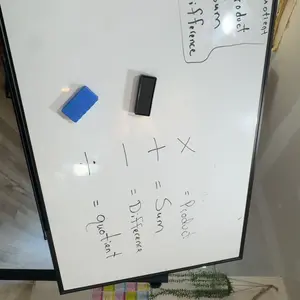 quotient
Product
Sum
Difference
× = Product
+ = Sum
− = Difference
÷ = quotient